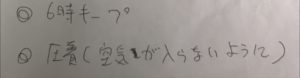 ◎ 6時キープ
◎ 圧着(空気が入らないように)